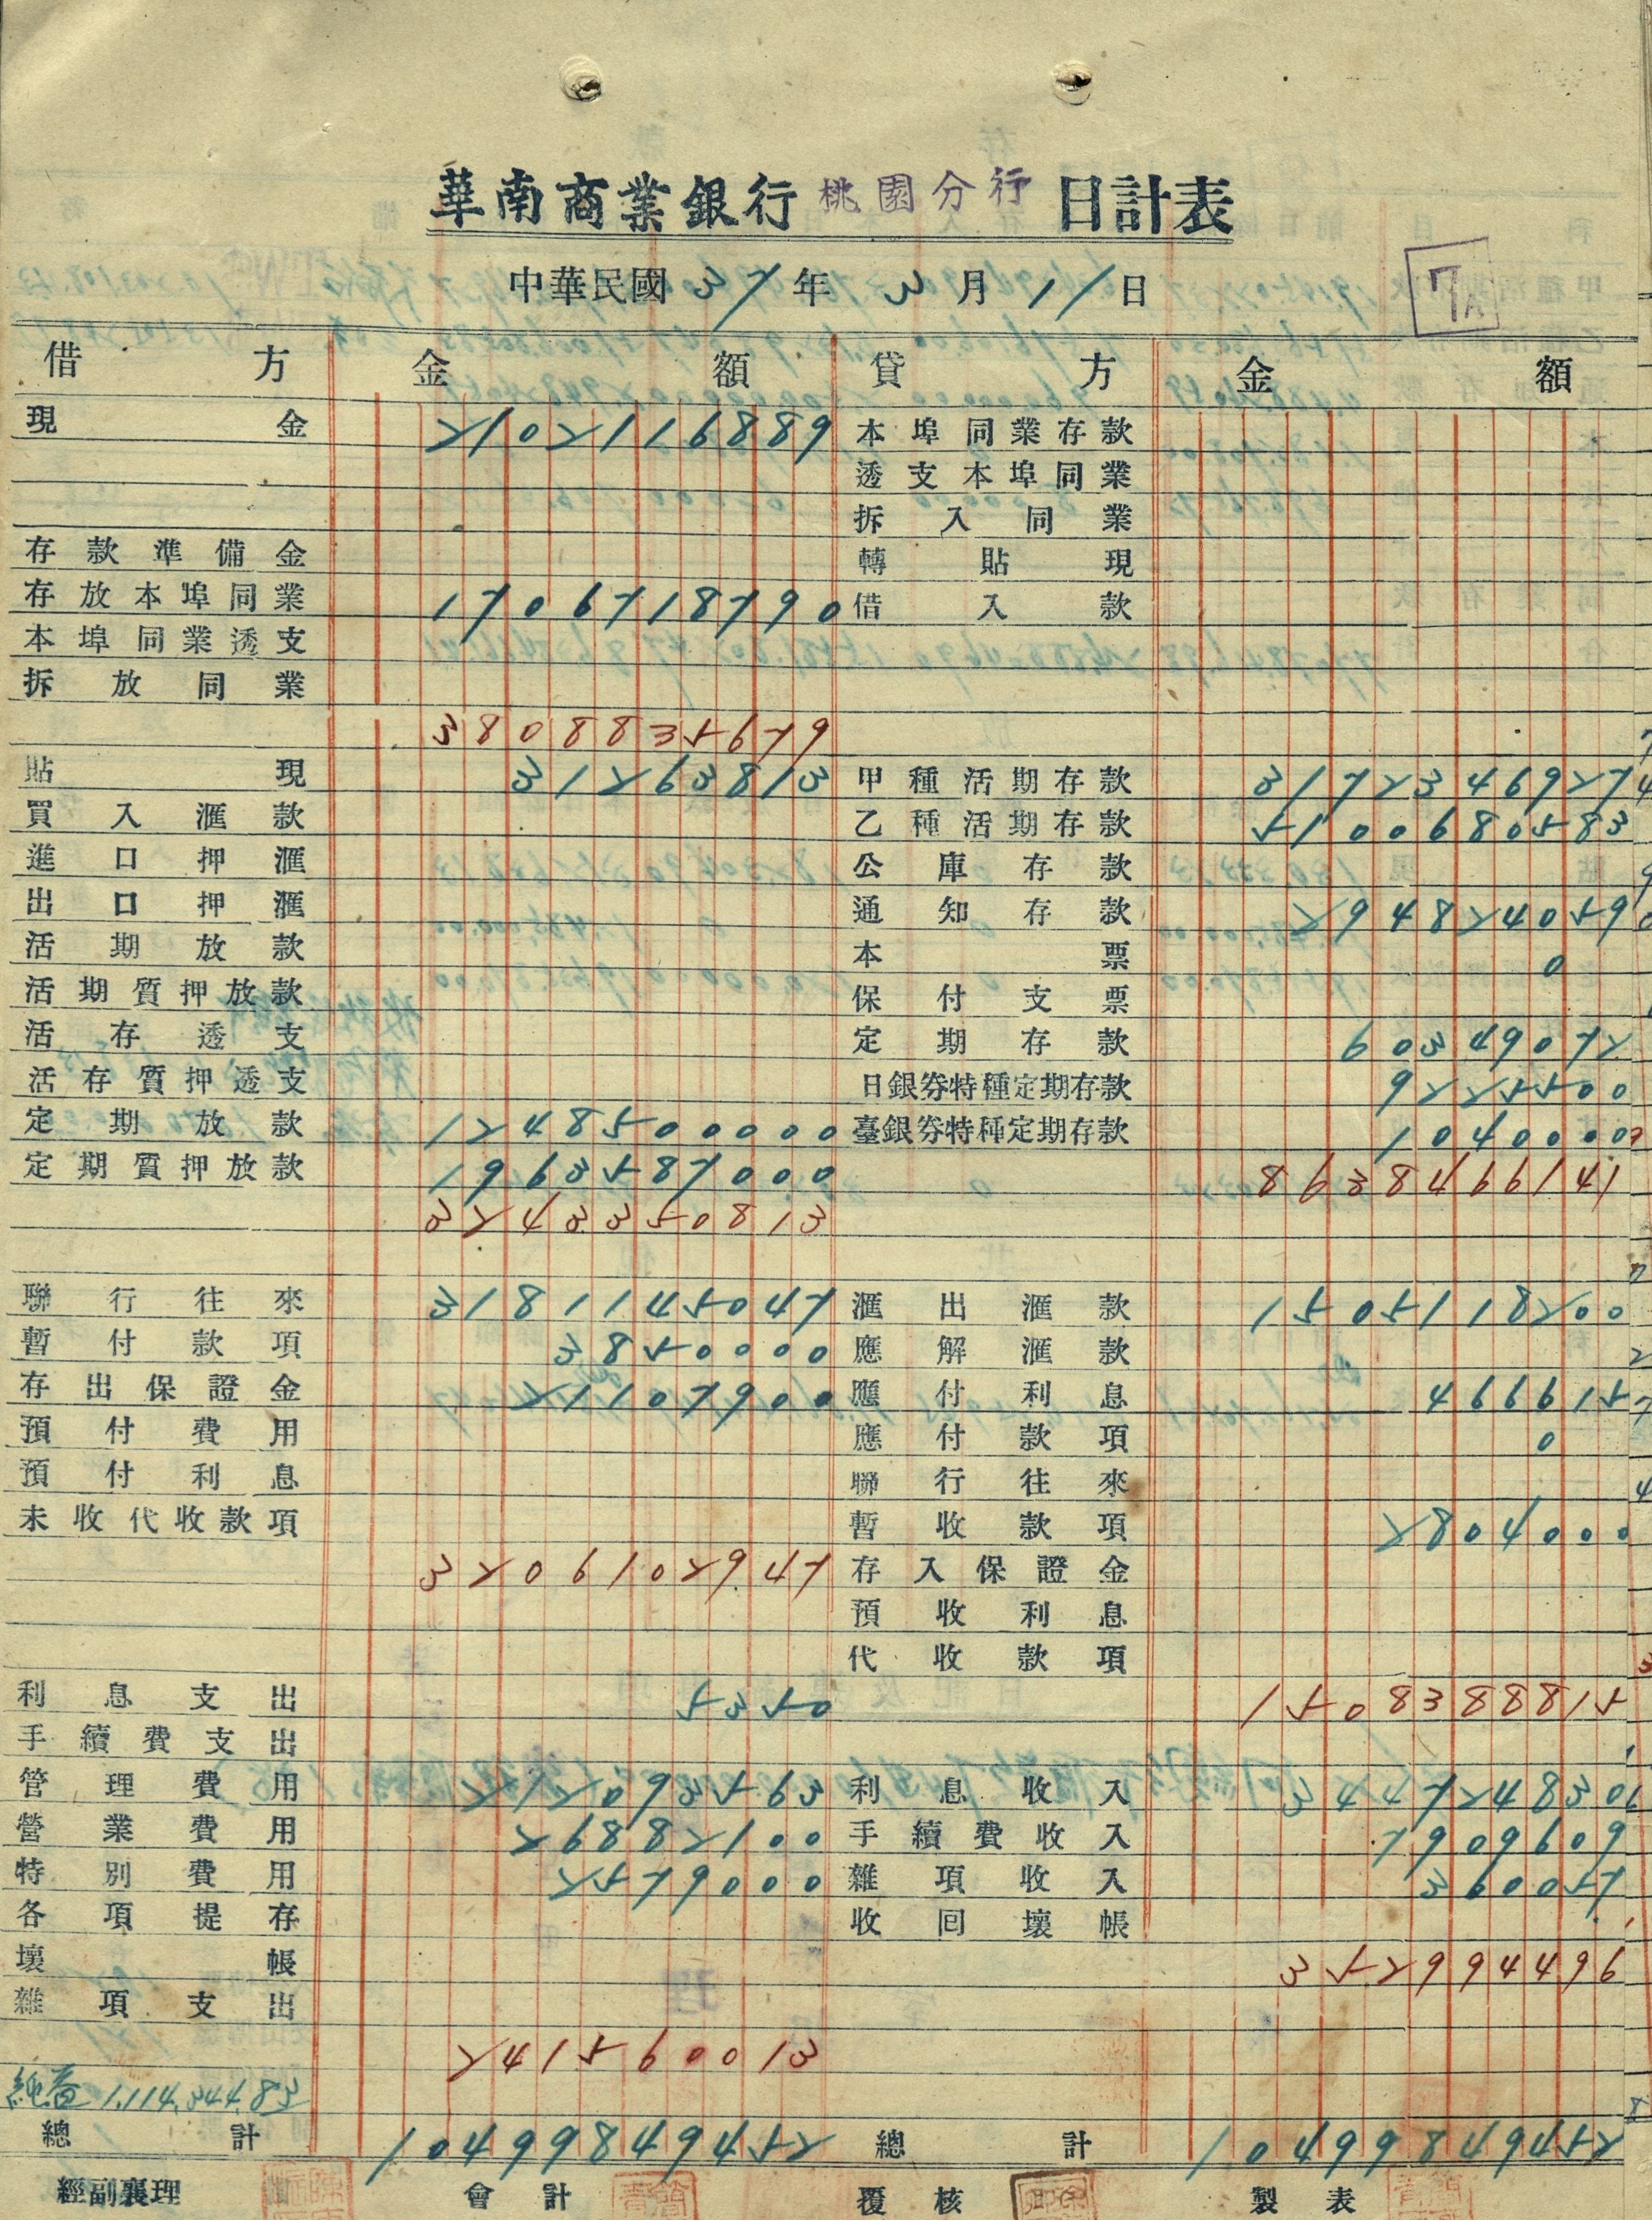 華南商業銀行 桃園分行 日計表
中華民國37年3月11日
7A
借方 金額 貸方 金額
現金 2102116889 本埠同業存款
透支本埠同業
拆入同業
存款準備金 轉貼現
存放本埠同業 1706718790 借入款
本埠同業透支
拆放同業
3808835679
貼現 31263813 甲種活期存款 3172346927
買入滙款 乙種活期存款 5100680583
進口押滙 公庫存款
出口押滙 通知存款 294824059
活期放款 本票 0
活期質押放款 保付支票
活存透支 定期存款 60349072
活存質押透支 日銀券特種定期存款 9225500
定期放款 1248500000 臺銀券特種定期存款 1040000
定期質押放款 1963587000 8638466141
3243350813
聯行往來 3181145047 滙出滙款 1505118200
暫付款項 3850000 應解滙款
存出保證金 21107900 應付利息 466615
預付費用 應付款項 0
預付利息 聯行往來
未收代收款項 暫收款項 2804000
3206102947 存入保證金
預收利息
代收款項
利息支出 5350 1508388815
手續費支出
管理費用 212093563 利息收入 344724830
營業費用 26882100 手續費收入 7909609
特別費用 2579000 雜項收入 360057
各項提存 收回壞帳
壞帳 352994496
雜項支出
241560013
純益 1,114,344.83
總計 10499849452 總計 10499849452
經副襄理 會計 覆核 製表